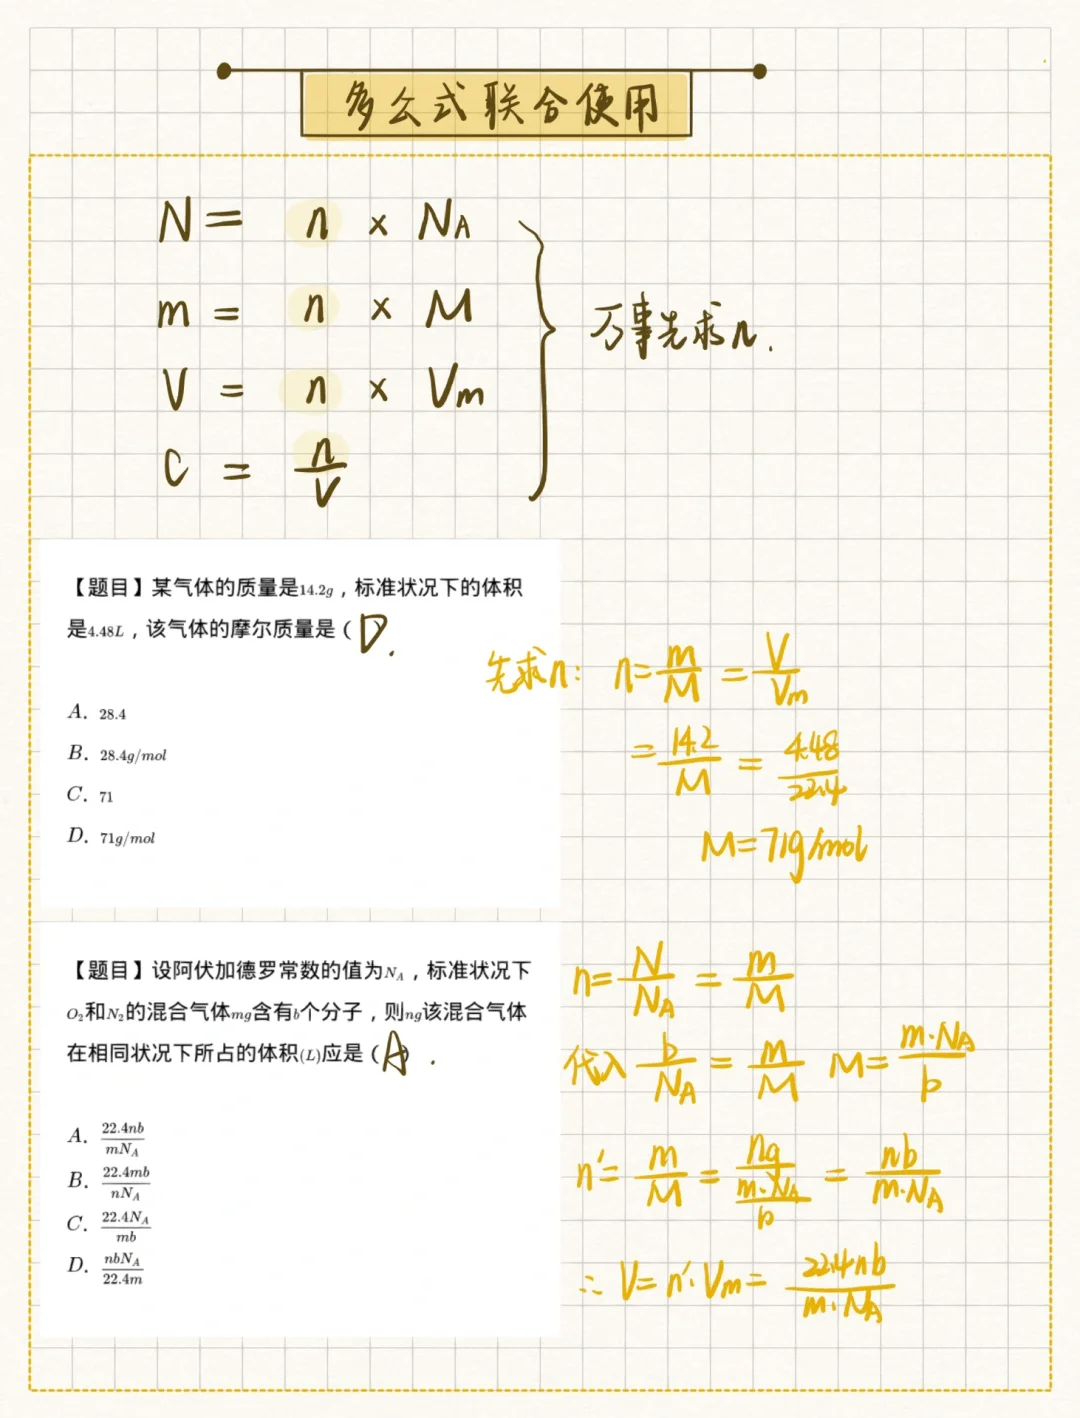 多公式联合使用
N = n × N_A
m = n × M
V = n × Vm
C = n/V
万事先求n.
【题目】某气体的质量是14.2g，标准状况下的体积
是4.48L，该气体的摩尔质量是（D.
A. 28.4
B. 28.4g/mol
C. 71
D. 71g/mol
先求n: n = m/M = V/Vm
= 14.2/M = 4.48/22.4
M = 71g/mol
【题目】设阿伏加德罗常数的值为N_A，标准状况下
O₂和N₂的混合气体mg含有b个分子，则ng该混合气体
在相同状况下所占的体积(L)应是（A）.
A. 22.4nb/mN_A
B. 22.4mb/nN_A
C. 22.4N_A/mb
D. nbN_A/22.4m
n = N/N_A = m/M
代入 b/N_A = m/M M = m·N_A/b
n' = m/M = ng/(m·N_A/b) = nb/m·N_A
∴ V = n'·Vm = 22.4nb/m·N_A